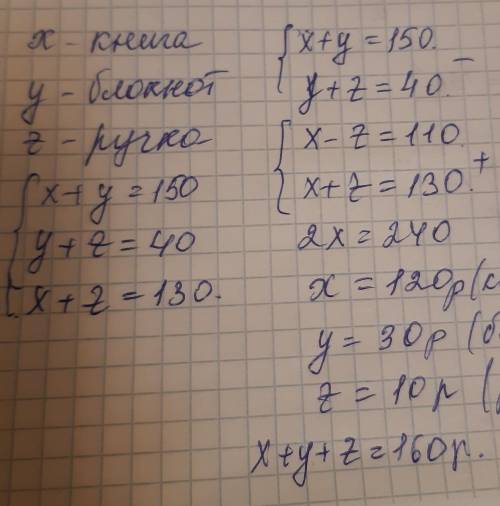 x - книга
y - блокнот
z - ручка
x + y = 150
y + z = 40
x + z = 130.
x + y = 150.
y + z = 40. -
x - z = 110.
x + z = 130. +
2x = 240
x = 120р (к
y = 30р (б
z = 10р (
x + y + z = 160р.